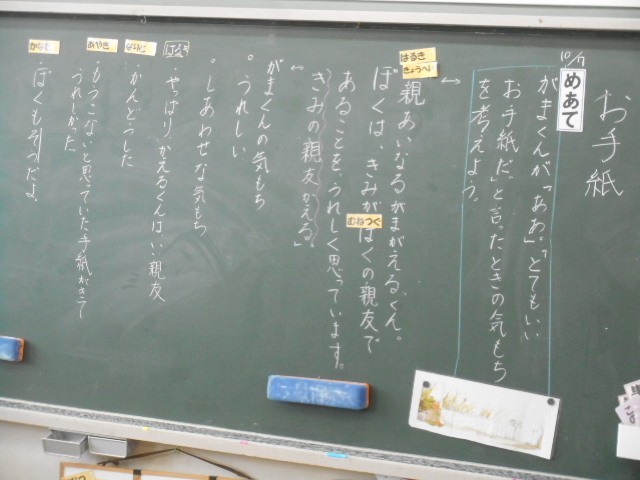 お手紙
10/17
めあて
がまくんが「ああ。」「とてもいい
お手紙だ。」と言ったときの気もち
を考えよう。
はるき
きょうへい
「親あいなるがまがえるくん。
ぼくは、きみがぼくの親友で
むねつぐ
あることを、うれしく思っています。
きみの親友、かえる。」
がまくんの気もち
・うれしい
・しあわせな気もち
・やっぱりかえるくんはいい親友
・かんどうした
あやき
・もうこないと思っていた手紙がきて
うれしかった。